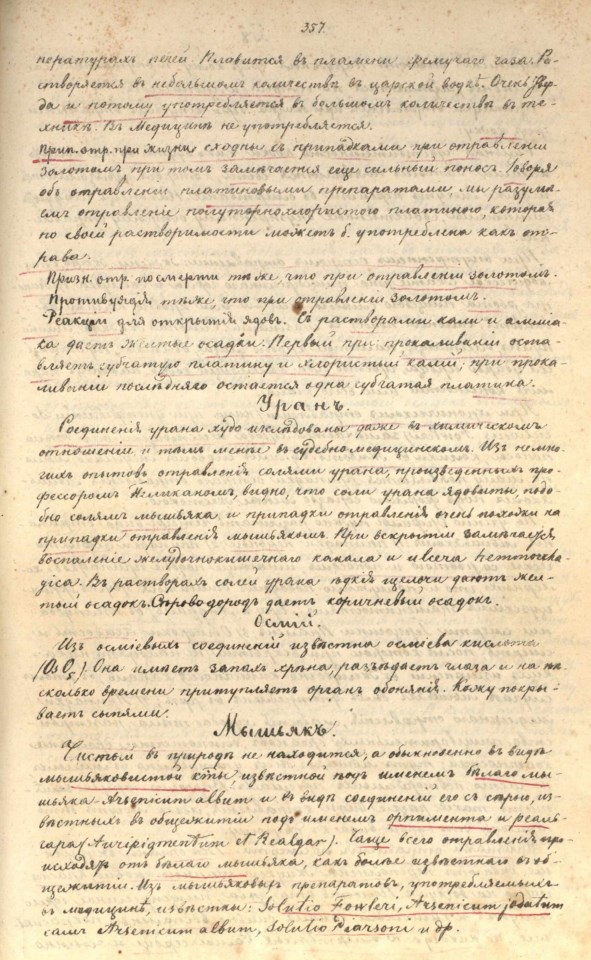 357.
пературахъ печей плавится въ пламени гремучаго газа. Ра-
створяется въ небольшомъ количествѣ въ царской водкѣ. Очень тver-
да и потому употребляется въ большомъ количествѣ въ те-
хникѣ. Въ Медицинѣ не употребляется.
Припад. отр. при жизни сходны съ припадками при отравленіи
золотомъ при томъ замѣчается еще сильный поносъ. Говоря
объ отравленіи платиновыми препаратами, мы разумѣ-
емъ отравленіе полуторнохлористою платиною, которая
по своей растворимости можетъ б. употреблена какъ от-
рава.
Призн. отр. посмерти тѣже, что при отравленіи золотомъ.
Противуядія тѣже, что при отравленіи золотомъ.
Реакціи для открытія ядовъ. Съ растворами кали и амміа-
ка даетъ желтые осадки. Первый при прокаливаніи оста-
вляетъ губчатую платину и хлористый калій; при прока-
ливаніи послѣдняго остается одна губчатая платина.
Уранъ.
Соединенія урана худо изслѣдованы даже въ химическомъ
отношеніи и тѣмъ менѣе въ судебномедицинскомъ. Изъ немно-
гихъ опытовъ отравленія солями урана, произведенныхъ про-
фессоромъ Пеликаномъ, видно, что соли урана ядовиты, подо-
бно солямъ мышьяка, и припадки отравленія очень похожи на
припадки отравленія мышьякомъ. При вскрытіи замѣчается
воспаленіе желудочнокишечнаго канала и ulcera hemmorrha-
gica. Въ растворахъ солей урана ѣдкія щелочи даютъ жел-
тый осадокъ. Сѣроводородъ даетъ коричневый осадокъ.
Осмій.
Изъ осміевыхъ соединеній извѣстна осміева кислота
(OsO₅). Она имѣетъ запахъ хрѣна, разъѣдаетъ глаза и на нѣ-
сколько времени притупляетъ органъ обонянія. Кожу покры-
ваетъ сыпями.
Мышьякъ.
Чистый въ природѣ не находится, а обыкновенно въ видѣ
мышьяковистой к҃ты, извѣстной подъ именемъ бѣлаго мы-
шьяка Arsenicum album, и въ видѣ соединеній его съ сѣрою, из-
вѣстныхъ въ общежитіи подъ именемъ орпимента и реаль-
гара (Auripigmentum et Realgar). Чаще всего отравленія про-
исходятъ отъ бѣлаго мышьяка, какъ болѣе извѣстнаго въ об-
щежитіи. Изъ мышьяковыхъ препаратовъ, употребляемыхъ
въ медицинѣ, извѣстны: Solutio Fowleri, Arsenicum jodatum
самъ Arsenicum album, Solutio Pearsoni и др.